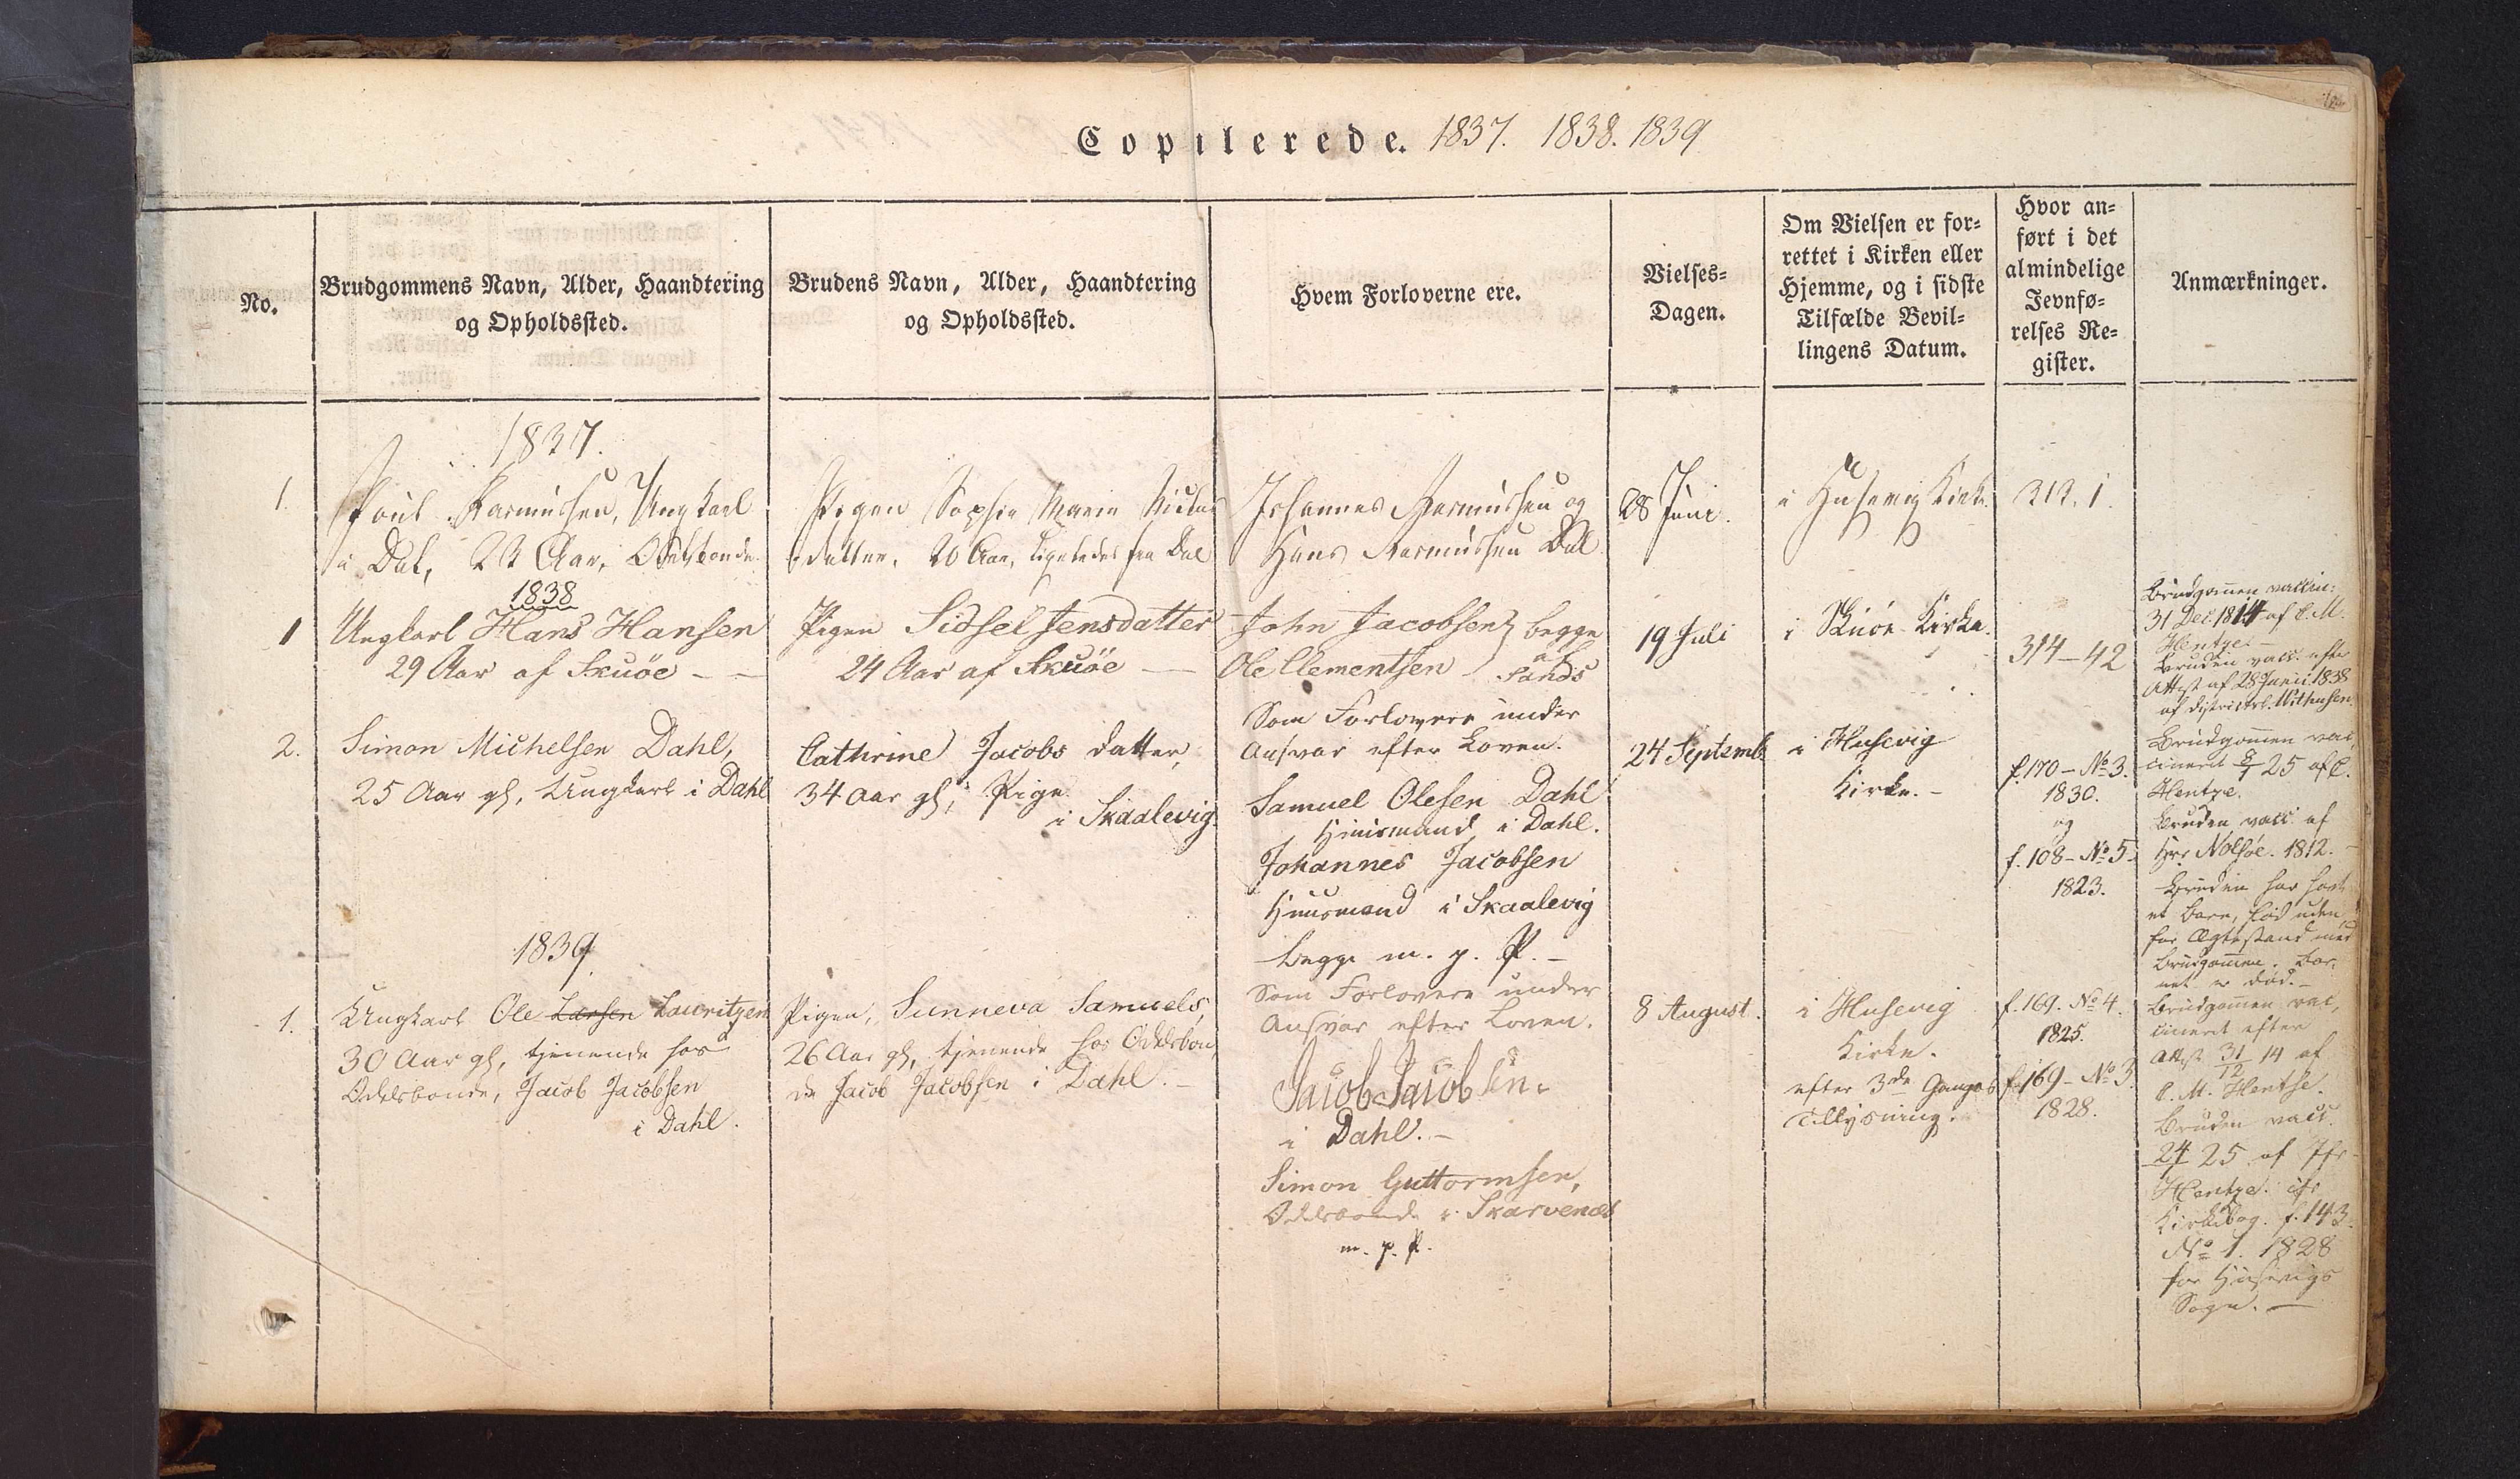 Copulerede. 1837. 1838. 1839
No.
Brudgommens Navn, Alder, Haandtering
og Opholdssted.
Brudens Navn, Alder, Haandtering
og Opholdssted.
Hvem Forloverne ere.
Vielses-
Dagen.
Om Vielsen er for-
rettet i Kirken eller
Hjemme, og i sidste
Tilfælde Bevil-
lingens Datum.
Hvor an-
ført i det
almindelige
Jevnfø-
relses Re-
gister.
Anmærkninger.
1837.
1.
Poul Rasmussen, Ungkarl
i Dal, 23 Aar, Odelsbonde
Pigen Sophie Marie
datter, 20 Aar, ligeledes fra Dal
Johannes Rasmussen og
Hans Rasmussen Dal
28 Juni.
i Husevig Kirke.
313. 1.
1838
1
Ungkarl Hans Hansen
29 Aar af Skuöe - -
Pigen Sidsel Jensdatter
24 Aar af Skuöe -
John Jacobsen } begge
Ole Clementsen af Sands
Som Forlovere under
Ansvar efter Loven.
19 Juli
i Skuöe Kirke.
314-42
Brudgommen vaccin:
31 Dec. 1814 af C. M.
Hentze. -
Bruden vacc. efter
Attest af 28 Junii 1838
af
2.
Simon Michelsen Dahl,
25 Aar gl, Ungkarl i Dahl
Cathrine Jacobs datter,
34 Aar gl, Pige
i Skaalevig.
Samuel Olesen Dahl
Huusmand i Dahl.
Johannes Jacobsen
Huusmand i Skaalevig
begge m. p. P. -
Som Forlovere under
Ansvar efter Loven.
24 Septemb
i Husevig
Kirke. -
f. 170 - No 3.
1830.
og
f. 108 - No 5.
1823.
Brudgommen vac,
cineret 25 af C.
Hentze.
Bruden vacc. af
Herr Nolsöe. 1812. -
Bruden har havt
et Barn, fød uden,
for Ægtestand med
Brudgommen. Bar,
net er død. -
1839.
1.
Ungkarl Ole Larsen Lauritzen
30 Aar gl, tjenende hos
Odelsbonde, Jacob Jacobsen
i Dahl.
Pigen, Sunneva Samuels,
26 Aar gl, tjenende hos Odelsbon,
de Jacob Jacobsen i Dahl. -
Jacob Jacobsen.
i Dahl. -
Simon Guttormsen,
Odelsbonde i Skarvenæs
m. p. P.
8 August.
i Husevig
Kirke.
efter 3de Ganges
Tillysning.
f. 169. No 4.
1825.
f. 169 - No 3.
1828.
Brudgommen vac,
cineret efter
Att. 31/12 14 af
C. M. Hentze.
Bruden vacc.
25 af
Hentze. cfr
Kirkebog. f. 143.
No 1. 1828
for Husevigs
Sogn. -